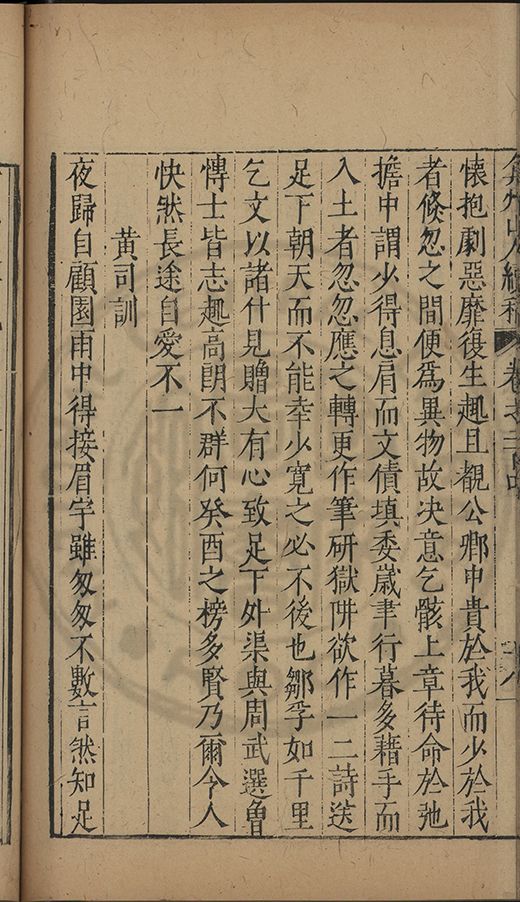 弇州山人續稿 卷之二百
懷抱劇惡靡復生趣且覩公卿中貴於我而少於我
者倏忽之間便爲異物故决意乞骸上章待命於弛
擔中謂少得息肩而文債填委嵗聿行暮多藉手而
入土者忽忽應之轉更作筆研獄阱欲作一二詩送
足下朝天而不能幸少寬之必不後也鄒孚如千里
乞文以諸什見贈大有心致足下外渠與周武選魯
博士皆志趣高朗不群何癸酉之榜多賢乃爾令人
快然長途自愛不一
黃司訓
夜歸自顧園雨中得接眉宇雖匆匆不數言然知足